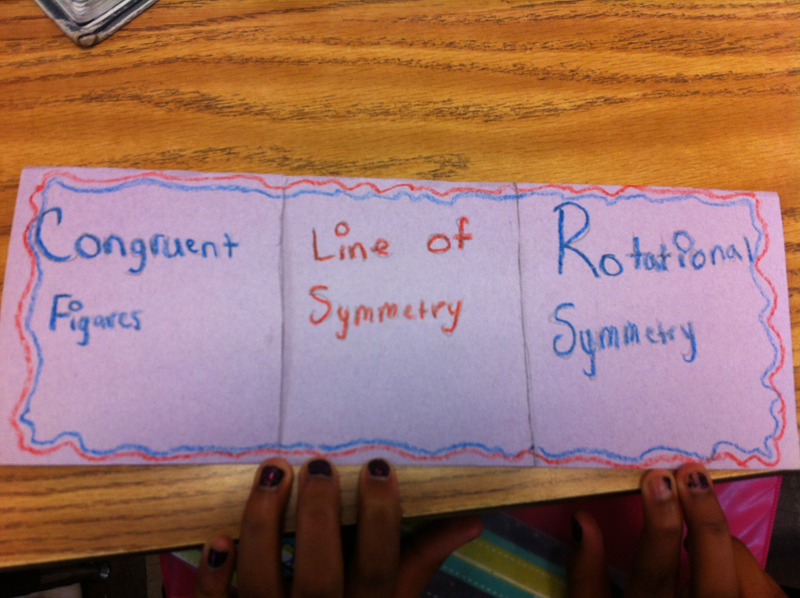 Congruent
Figures
Line of
Symmetry
Rotational
Symmetry